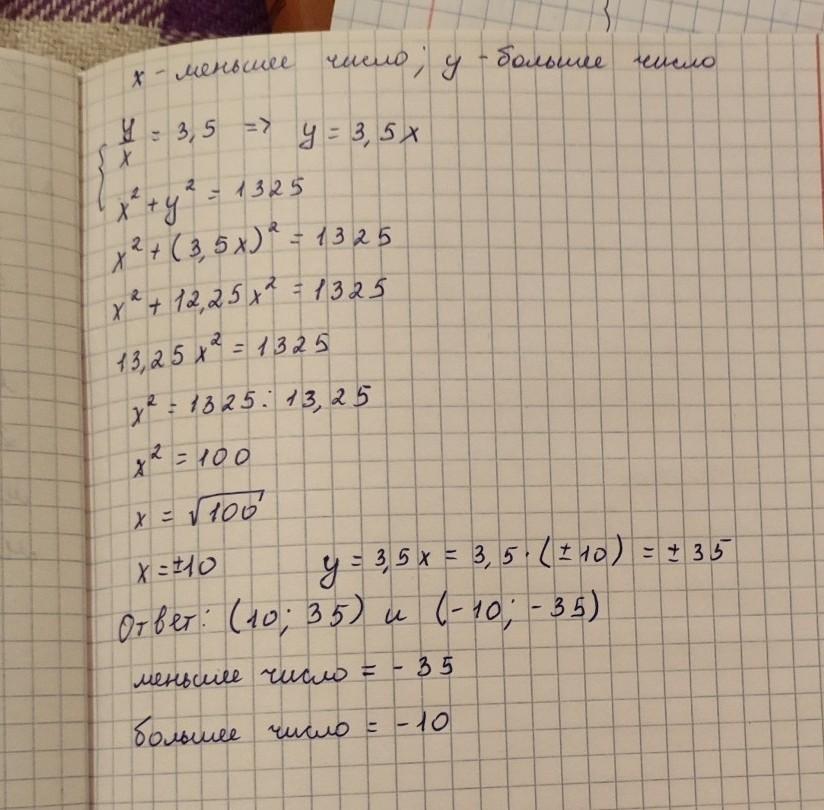 x - меньшее число; y - большее число
y/x = 3,5 => y = 3,5x
x² + y² = 1325
x² + (3,5x)² = 1325
x² + 12,25x² = 1325
13,25x² = 1325
x² = 1325 : 13,25
x² = 100
x = √100
x = ±10 y = 3,5x = 3,5·(±10) = ±35
Ответ: (10; 35) и (-10; -35)
меньшее число = -35
большее число = -10